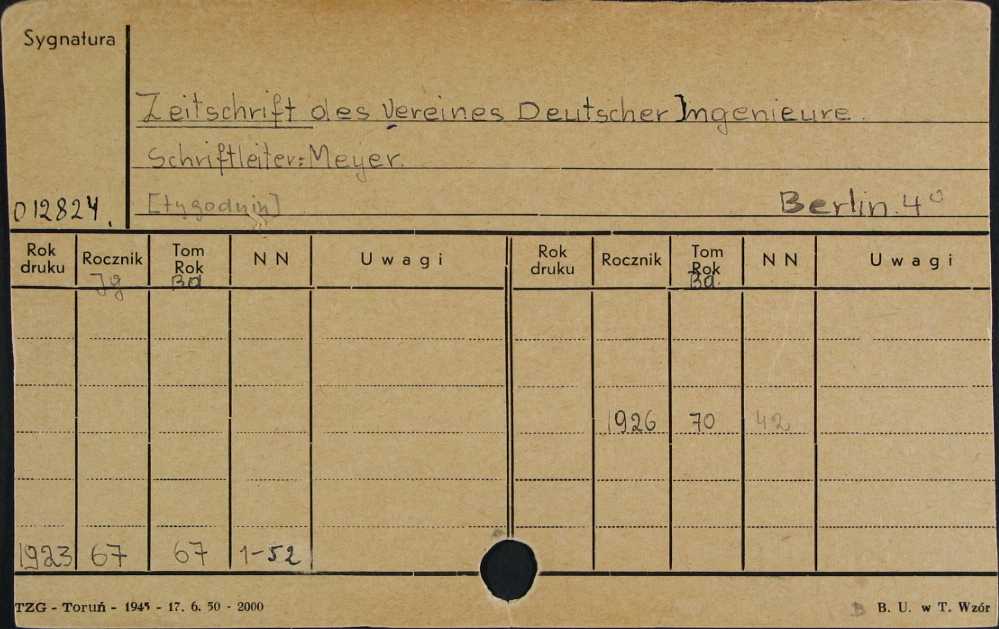 Sygnatura
Zeitschrift des Vereines Deutscher Ingenieure.
Schriftleiter: Meyer.
012824. [tygodnik] Berlin. 4°
Rok druku Rocznik Tom Rok N N Uwagi Rok druku Rocznik Tom Rok N N Uwagi
Jg Bd Bd.
1926 70 42
1923 67 67 1-52
TZG - Toruń - 1945 - 17. 6. 50 - 2000 B B. U. w T. Wzór